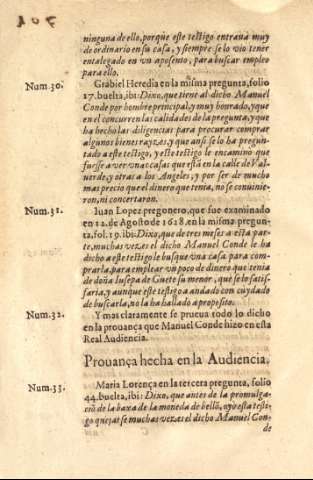 ninguna dello, porque este testigo entraua muy
de ordinario en su casa, y siempre se lo vio tener
entalegado en vn aposento, para buscar empleo
para ello.
Num.30. Grabiel Heredia en la misma pregunta, folio
17. buelta, ibi: Dixo, que tiene al dicho Manuel
Conde por hombre principal, y muy honrado, y que
en el concurren las calidades de la pregunta, y que
ha hecho las diligencias para procurar comprar
algunos bienes rayzes, y que ansi se lo ha pregun-
tado a este testigo, y este testigo le encaminò que
fuesse a ver vnas casas que està en la calle de Val-
uerde, y otras a los Angeles, y por ser de mucho
mas precio que el dinero que tenia, no se conuinie-
ron, ni concertaron.
Num.31. Iuan Lopez pregonero, que fue examinado
en 12. de Agosto de 1628. en la misma pregun-
ta, fol. 19. ibi: Dixo, que de tres meses a esta par-
te, muchas vezes el dicho Manuel Conde le ha
dicho a este testigo le busque vna casa para com-
prarla, para emplear vn poco de dinero que tenia
de doña Iusepa de Guete su menor, que se lo satis-
faria, y aunque este testigo a andado con cuydado
de buscarla, no la ha hallado a proposito.
Num.32. Y mas claramente se prueua todo lo dicho
en la prouança que Manuel Conde hizo en esta
Real Audiencia.
Prouança hecha en la Audiencia.
Num.33. Maria Lorença en la tercera pregunta, folio
44. buelta, ibi: Dixo, que antes de la promulga-
ciò de la baxa de la moneda de bellò, oyò esta testi-
go quejarse muchas vezes el dicho Manuel Con-
de